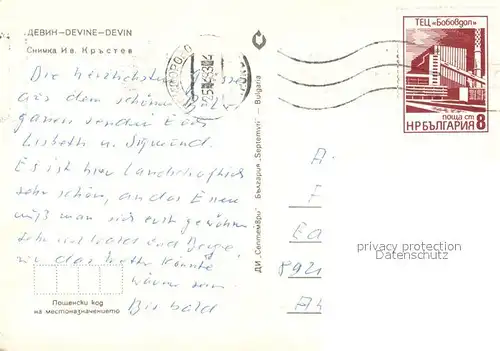 ДЕВИН–DEVINE–DEVIN
Снимка Ив. Кръстев
Die herzlichsten
aus dem schönen
garien senden Euch
Lisbeth u. Sigmund.
Es ist hier landschaftlich
sehr schön, an das Essen
muß man sich erst gewöhnen
sehr viel Wald und Berge,
nur das Wetter könnte
wärmer sein.
Bis bald
Пощенски код
на местоназначението
ДИ „Септември" България „Septemvri" — Bulgaria
ТЕЦ „Бобовдол"
поща ст
НРБЪЛГАРИЯ 8
A
F
Ea
892
privacy protection
Datenschutz